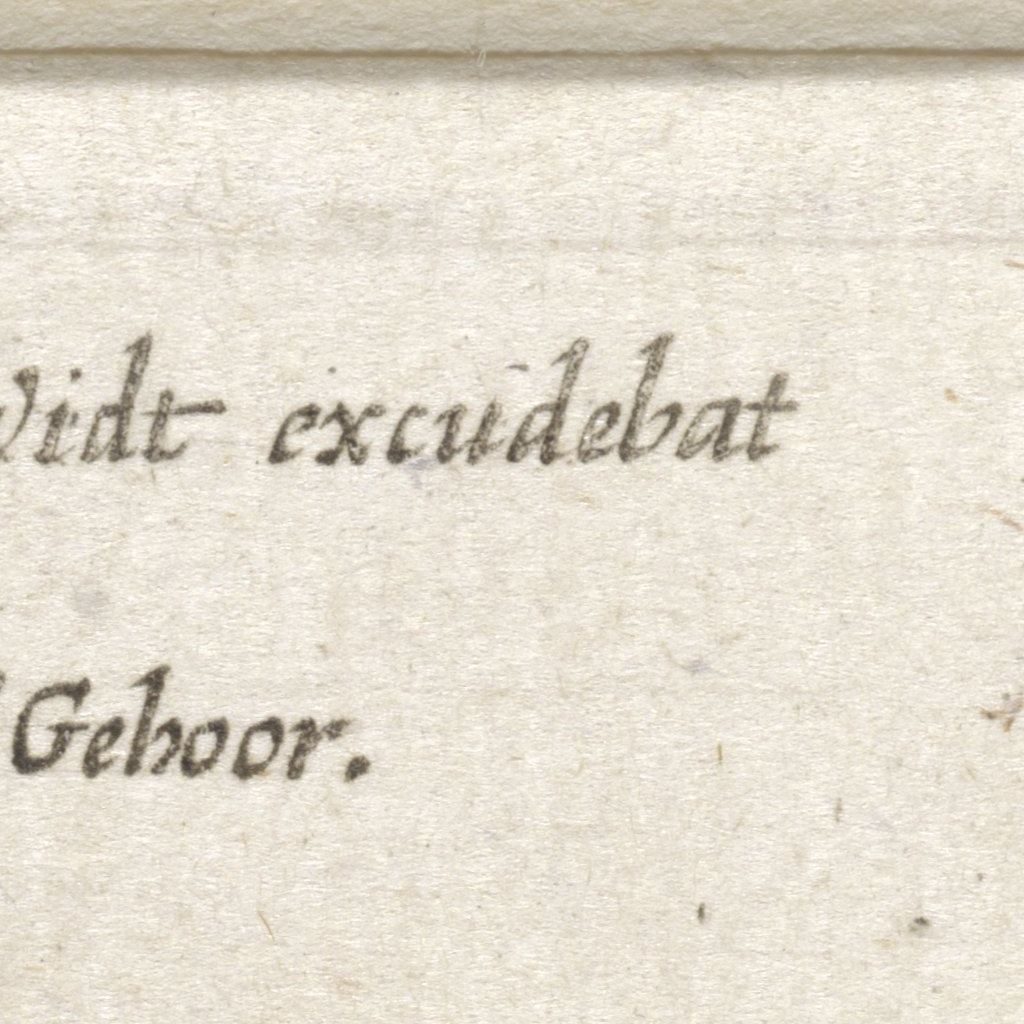 Vidt excudebat
Gehoor.